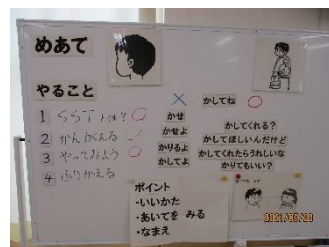 めあて
やること
1 SSTとは？ ○
2 かんがえる
3 やってみよう ○
4 ふりかえる
×
かせ
かせよ
かりるよ
かしてよ
かしてね ○
かしてくれる？
かしてほしいんだけど
かしてくれたらうれしいな
かりてもいい？
ポイント
・いいかた
・あいてを みる
・なまえ